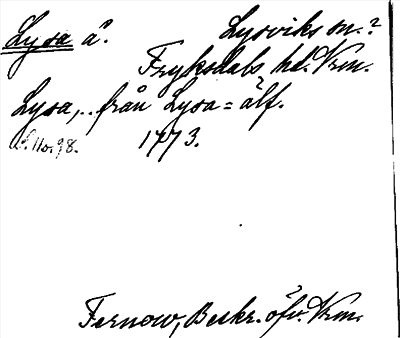 Lysa å. Lysviks sn.?
Fryksdals hd. Vrm.
Lysa,.. från Lysa=älf.
1773.
Fernow, Beskr. öfv. Vrm.